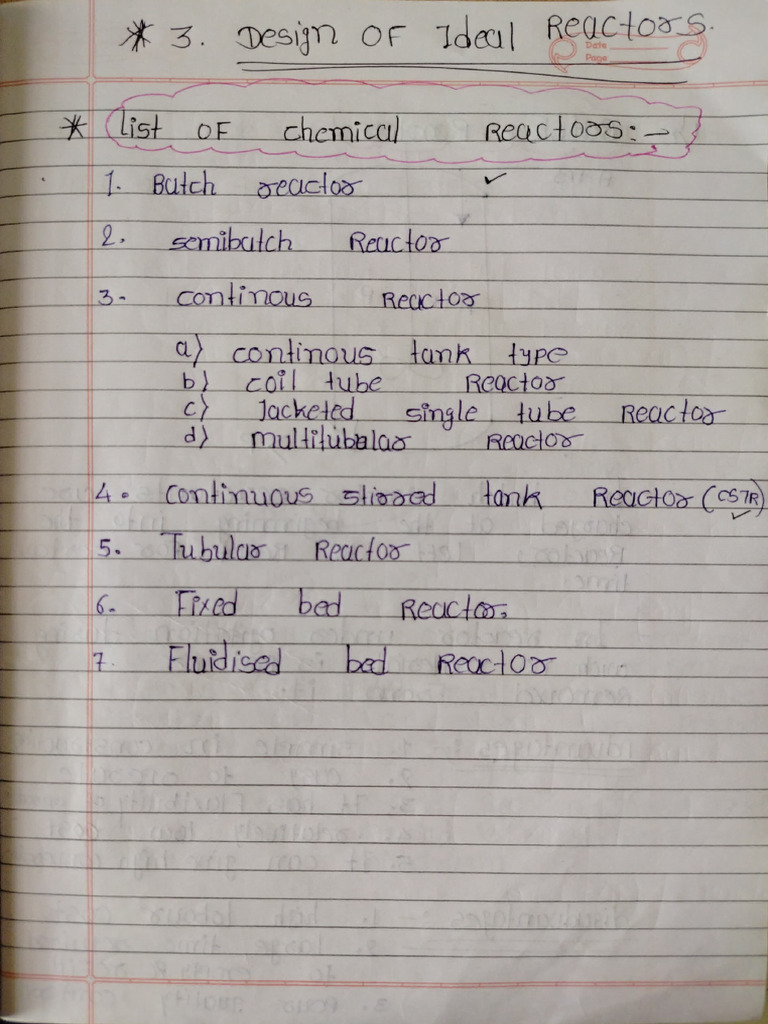 * 3. Design OF Ideal Reactors.
Date
Page
* List OF chemical Reactors:→
1. Batch reactor ✓
2. semibatch Reactor
3. continous Reactor
a) continous tank type
b) coil tube Reactor
c) Jacketed single tube Reactor
d) multitubular Reactor
4. continuous stirred tank Reactor (CSTR) ✓
5. Tubular Reactor
6. Fixed bed Reactor.
7. Fluidised bed Reactor